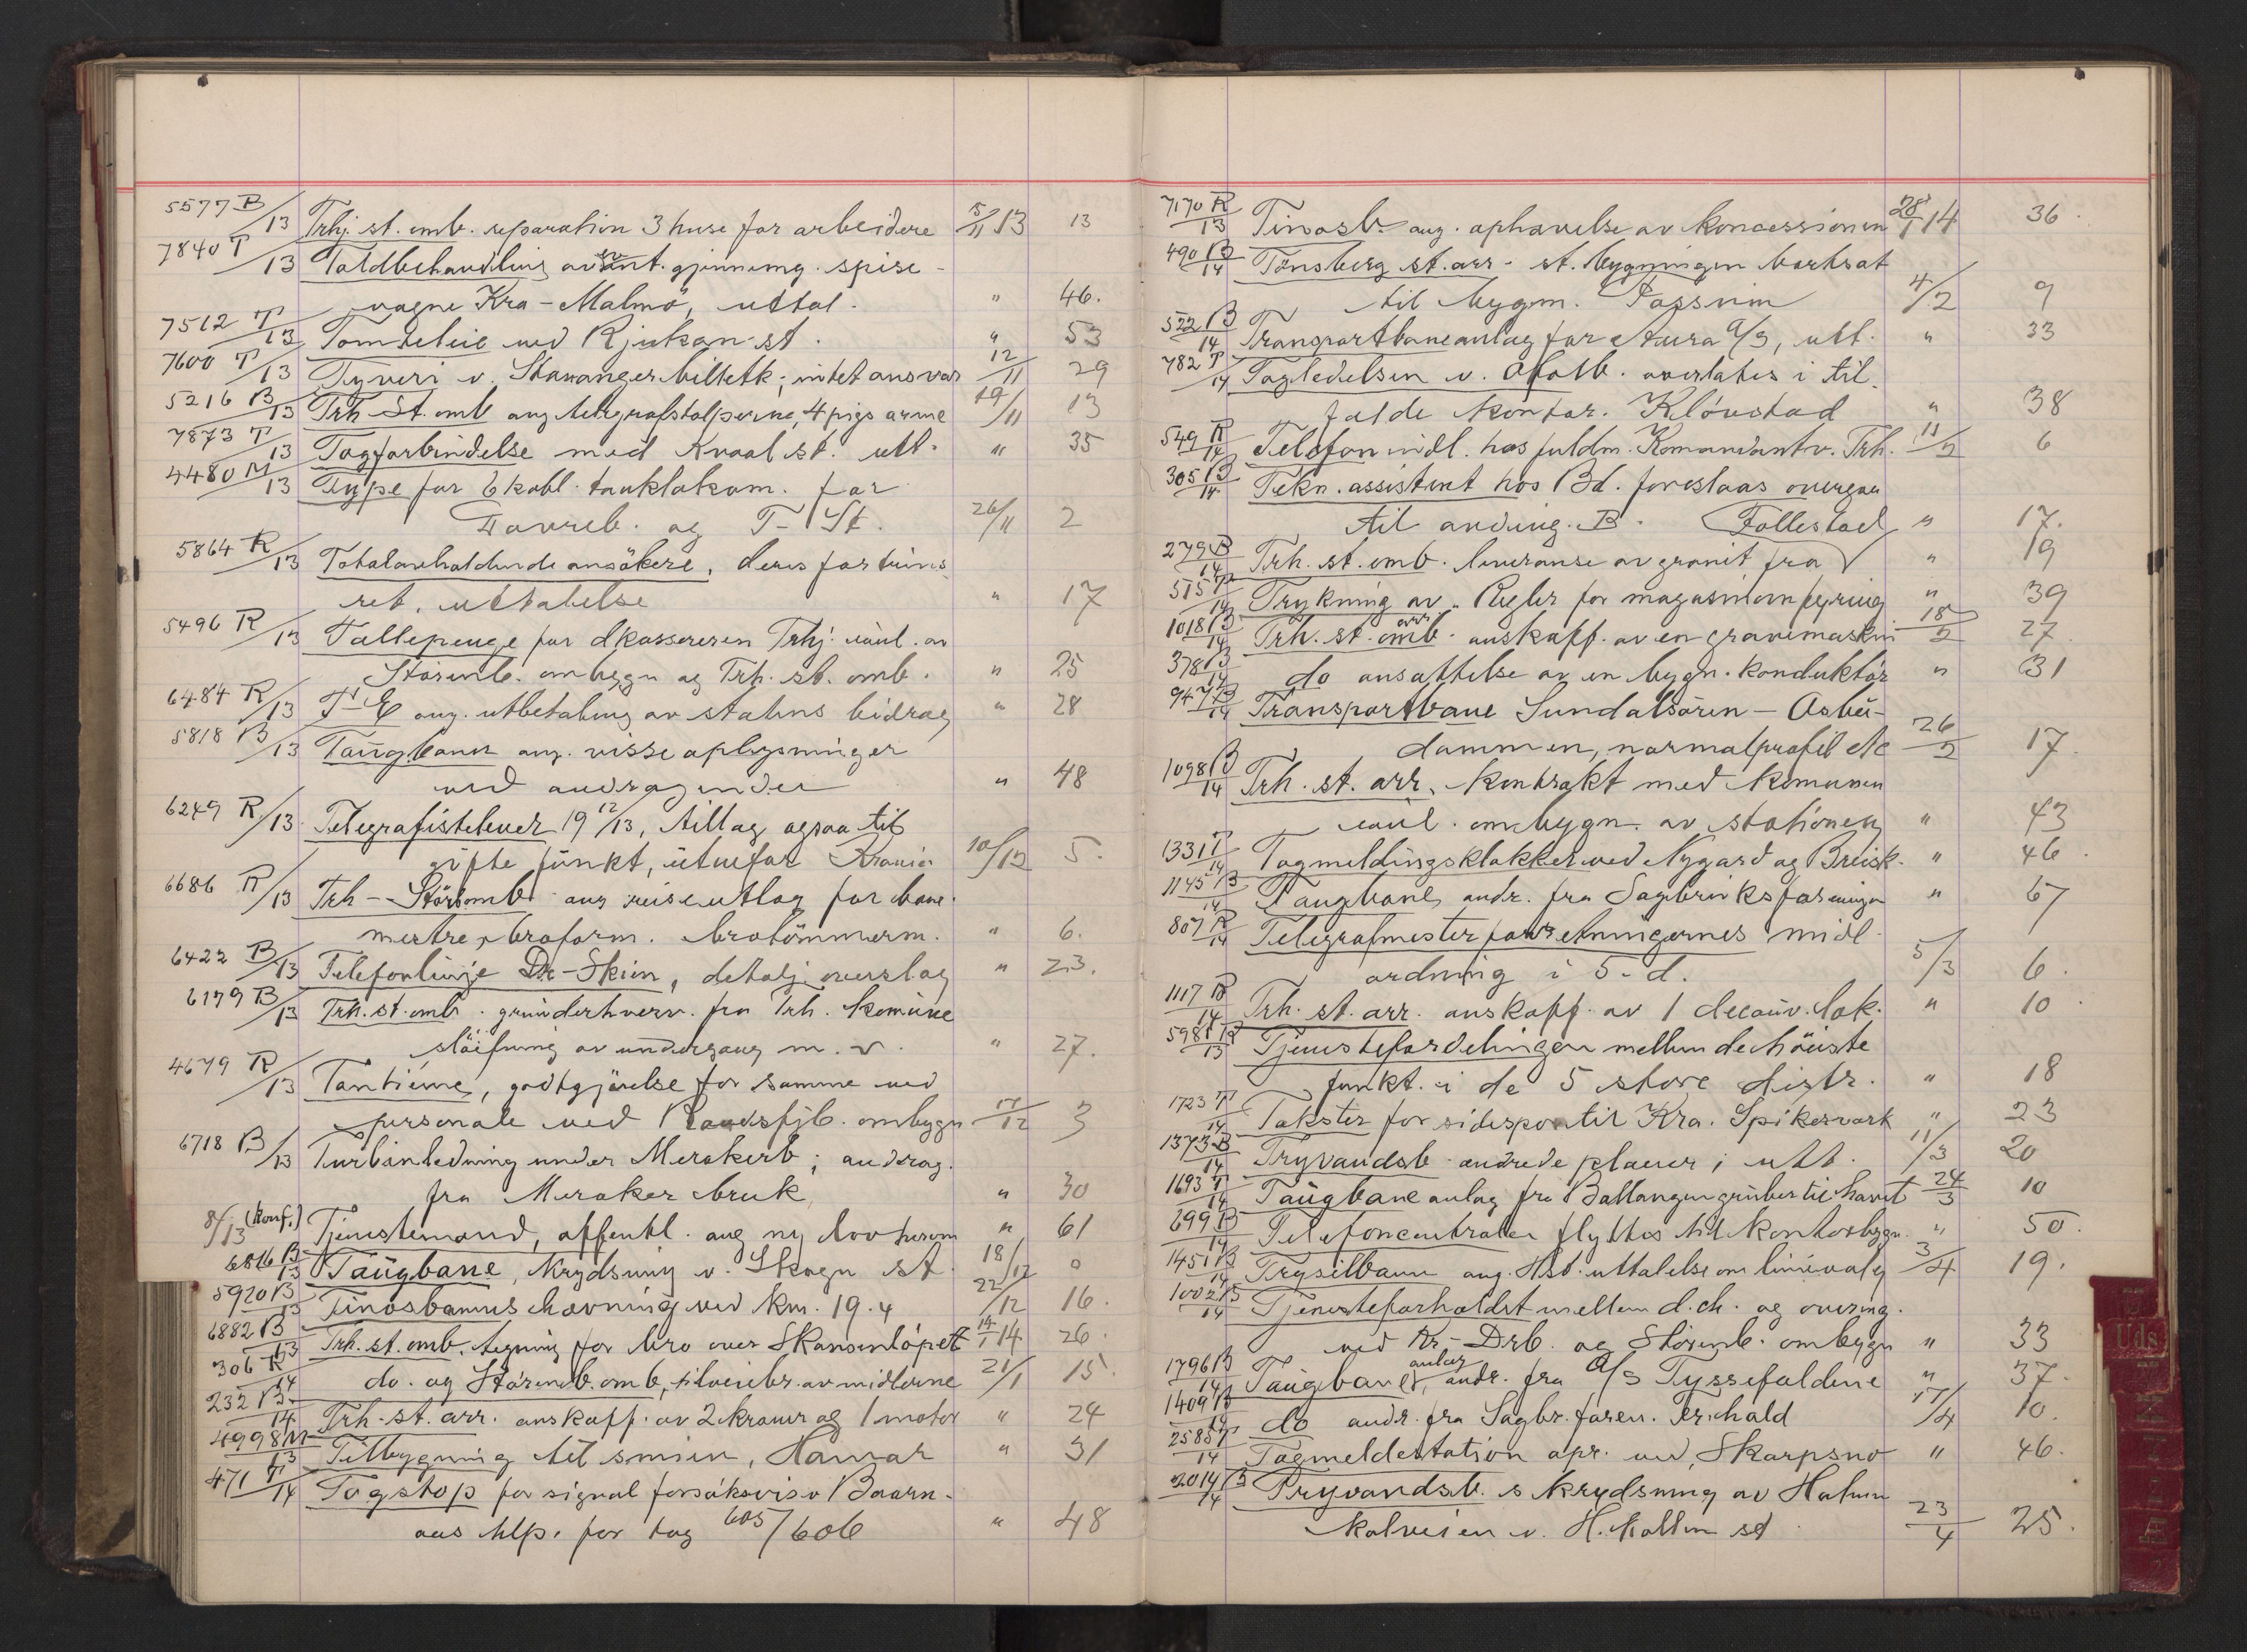 5577 B/13 Trhj. st. omb. reparation 3 huse for arbeidere 5/11 13 13
7840 T/13 Toldbehandling av int. gjennemg. spise-
vogne Kra - Malmö, uttal. " 46.
7512 T/13 Tomteleie ved Rjukan st. " 53
7600 T/13 Tyveri v. Stavanger billetk; intet ansvar 12/11 29
5216 B/13 Trh St. omb ang telegrafstolperne, 4 pigs arme 19/11 13
7873 T/13 Togforbindelse med Kvaal st. utt. " 35
4480 M/13 Type for 6 kobl. tanklokom. for
Dovreb. og T- St. 26/11 2
5864 R/13 Totalavholdende ansökere, deres fortrins
ret, uttalelse " 17
5496 R/13 Tællepenge for dkassereren Trhj. vedl. av
Störenb. ombygn og Trh. st. omb. " 25
6484 R/13 T-E ang. utbetaling av statens bidrag " 28
5818 B/13 Taugbaner ang. visse oplysninger
ved andragender " 48
6249 R/13 Telegrafistelever 19 12/13, tillæg ogsaa til
gifte funkt, utenfor Krania 10/12 5.
6686 R/13 Trh - Störomb ang reiseutlæg for bane-
mestre, broform. brotömmerm. " 6.
6422 B/13 Telefonlinje Dr-Skien, detalj. overslag " 23.
6179 B/13 Trh. st. omb. grunderhverv. fra Trh. komune
slöifning av undergang m. v. " 27.
4679 R/13 Tantieme, godtgjörelse for samme ved
personale ved Randsfjb. ombygn 17/12 3
6718 B/13 Turbinledning under Merakerb; andrag.
fra Meraker bruk " 30
8/13 (Konf.) Tjenestemænd, offentl. ang ny lov herom " 61
6816 B/13 Taugbane, krydsning v. Skogn st. 18/12 0
5920 B/13 Tinosbanens hævning ved km. 19.4 22/12 16.
6882 B/13 Trh. st. omb. tegning for bro over Skansenlöpet 14/1 14 26.
306 R/14 do. og Störenb. omb, tilveiebr. av midlerne 21/1 15.
232 B/14 Trh. st. arr. anskaff. av 2 kraner og 1 motor " 24
4998 M/13 Tilbygning til smien, Hamar " 31
471 T/14 Togstop for signal forsöksvis v Bærn-
aas hlp. for tog 605/606 " 48
7170 R/13 Tinosb. ang. ophævelse av koncessionen 28/1 14 36.
490 B/14 Tönsberg st. arr. st. bygningen bortsat
til bygm. 4/2 9
522 B/14 Transportbaneanlæg for Aura A/S, utt. " 33
782 T/14 Togledelsen v. Ofotb. overlates i til-
fælde kontor. Klóvstad " 38
549 R/14 Telefon indl. hos fuldm. Komandantv. Trh. 11/2 6
305 B/14 Tekn. assistent hos Bd. foreslaas overgaa
til anding. B. Follestad " 17.
279 B/14 Trh. st. omb. leveranse av granit fra V " 19
515 /14 Trykning av „Regler for magasinovnfyring " 39
1018 B/14 Trh. st. omb. arr anskaff. av en gravemaskin 18/2 27.
378 B/14 do ansættelse av en bygn. konduktör " 31
947 B/14 Transportbane Sundalsören - Osbu-
dammen, normalprofil etc 26/2 17.
1098 B/14 Trh. st. arr. kontrakt med komunen
vedl. ombygn. av stationen " 43
1331 T/14 Togmeldingsklokker ved Nygard og Breisk. " 46.
1145 B/14 Taugbane, andr. fra Sagbruksforeninge " 67
807 R/14 Telegrafmesterforretningernes midl.
ordning i 5. d. 5/3 6.
1117 B/14 Trh. st. arr. anskaff. av 1 decauv. lok. " 10
5981 R/13 Tjenestefordelingen mellem de höieste
funkt. i de 5 store distr. " 18
1723 T/14 Takster for sidespor til Kra. Spikerverk " 23
1373 B/14 Tryvandsb. ændrede planer; utt. 11/3 20
1693 T/14 Taugbaneanlæg fra Ballangen gruber til havet 24/3 10
699 B/14 Telefoncentralen flyttes til kontorbygn. " 50.
1451 B/14 Trysilbanen ang. Hst. uttalelse om linievalg 3/4 19.
1002 B/14 Tjenesteforholdet mellem d. ch. og overing.
ved Kr-Drb. og Störenb. ombygn " 33
1796 B/14 Taugbane anlæg, andr. fra A/S Tyssefaldene " 37.
1409 B/14 do andr. fra Sagbr. foren. Fr.hald 17/4 10.
2585 T/14 Togmeldestation opr. ved Skarpsno " 46.
2014 B/14 Tryvandsb. s krydsning av Holmen
kolveien v. H. kollen st 23/4 25.
Uds